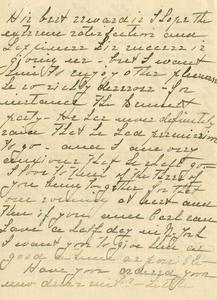 His best reward is I hope the
extreme satisfaction and
happiness his success is
giving us - but I want
him to enjoy other pleasures
he so richly deserves - for
instance the Bennett
party - He has never definitely
said that he had permission
to go - and I am very
anxious that he shall go -
I love to think of the three of
you being together for that
one evening at least and
then if you and Carl can
have a half day in N.York
I want you to give him as
good a time as possible -
Have you ordered your
new dress suit? - Little